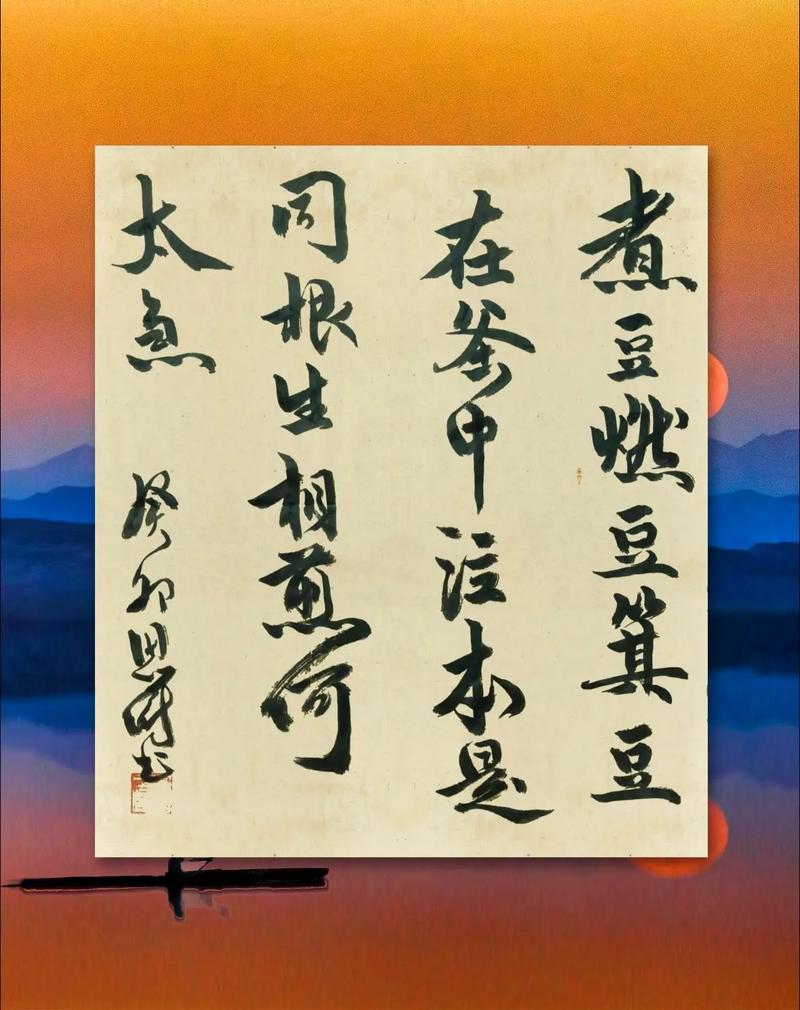 煮豆燃豆箕豆
在釜中泣本是
同根生相煎何
太急
癸卯 书